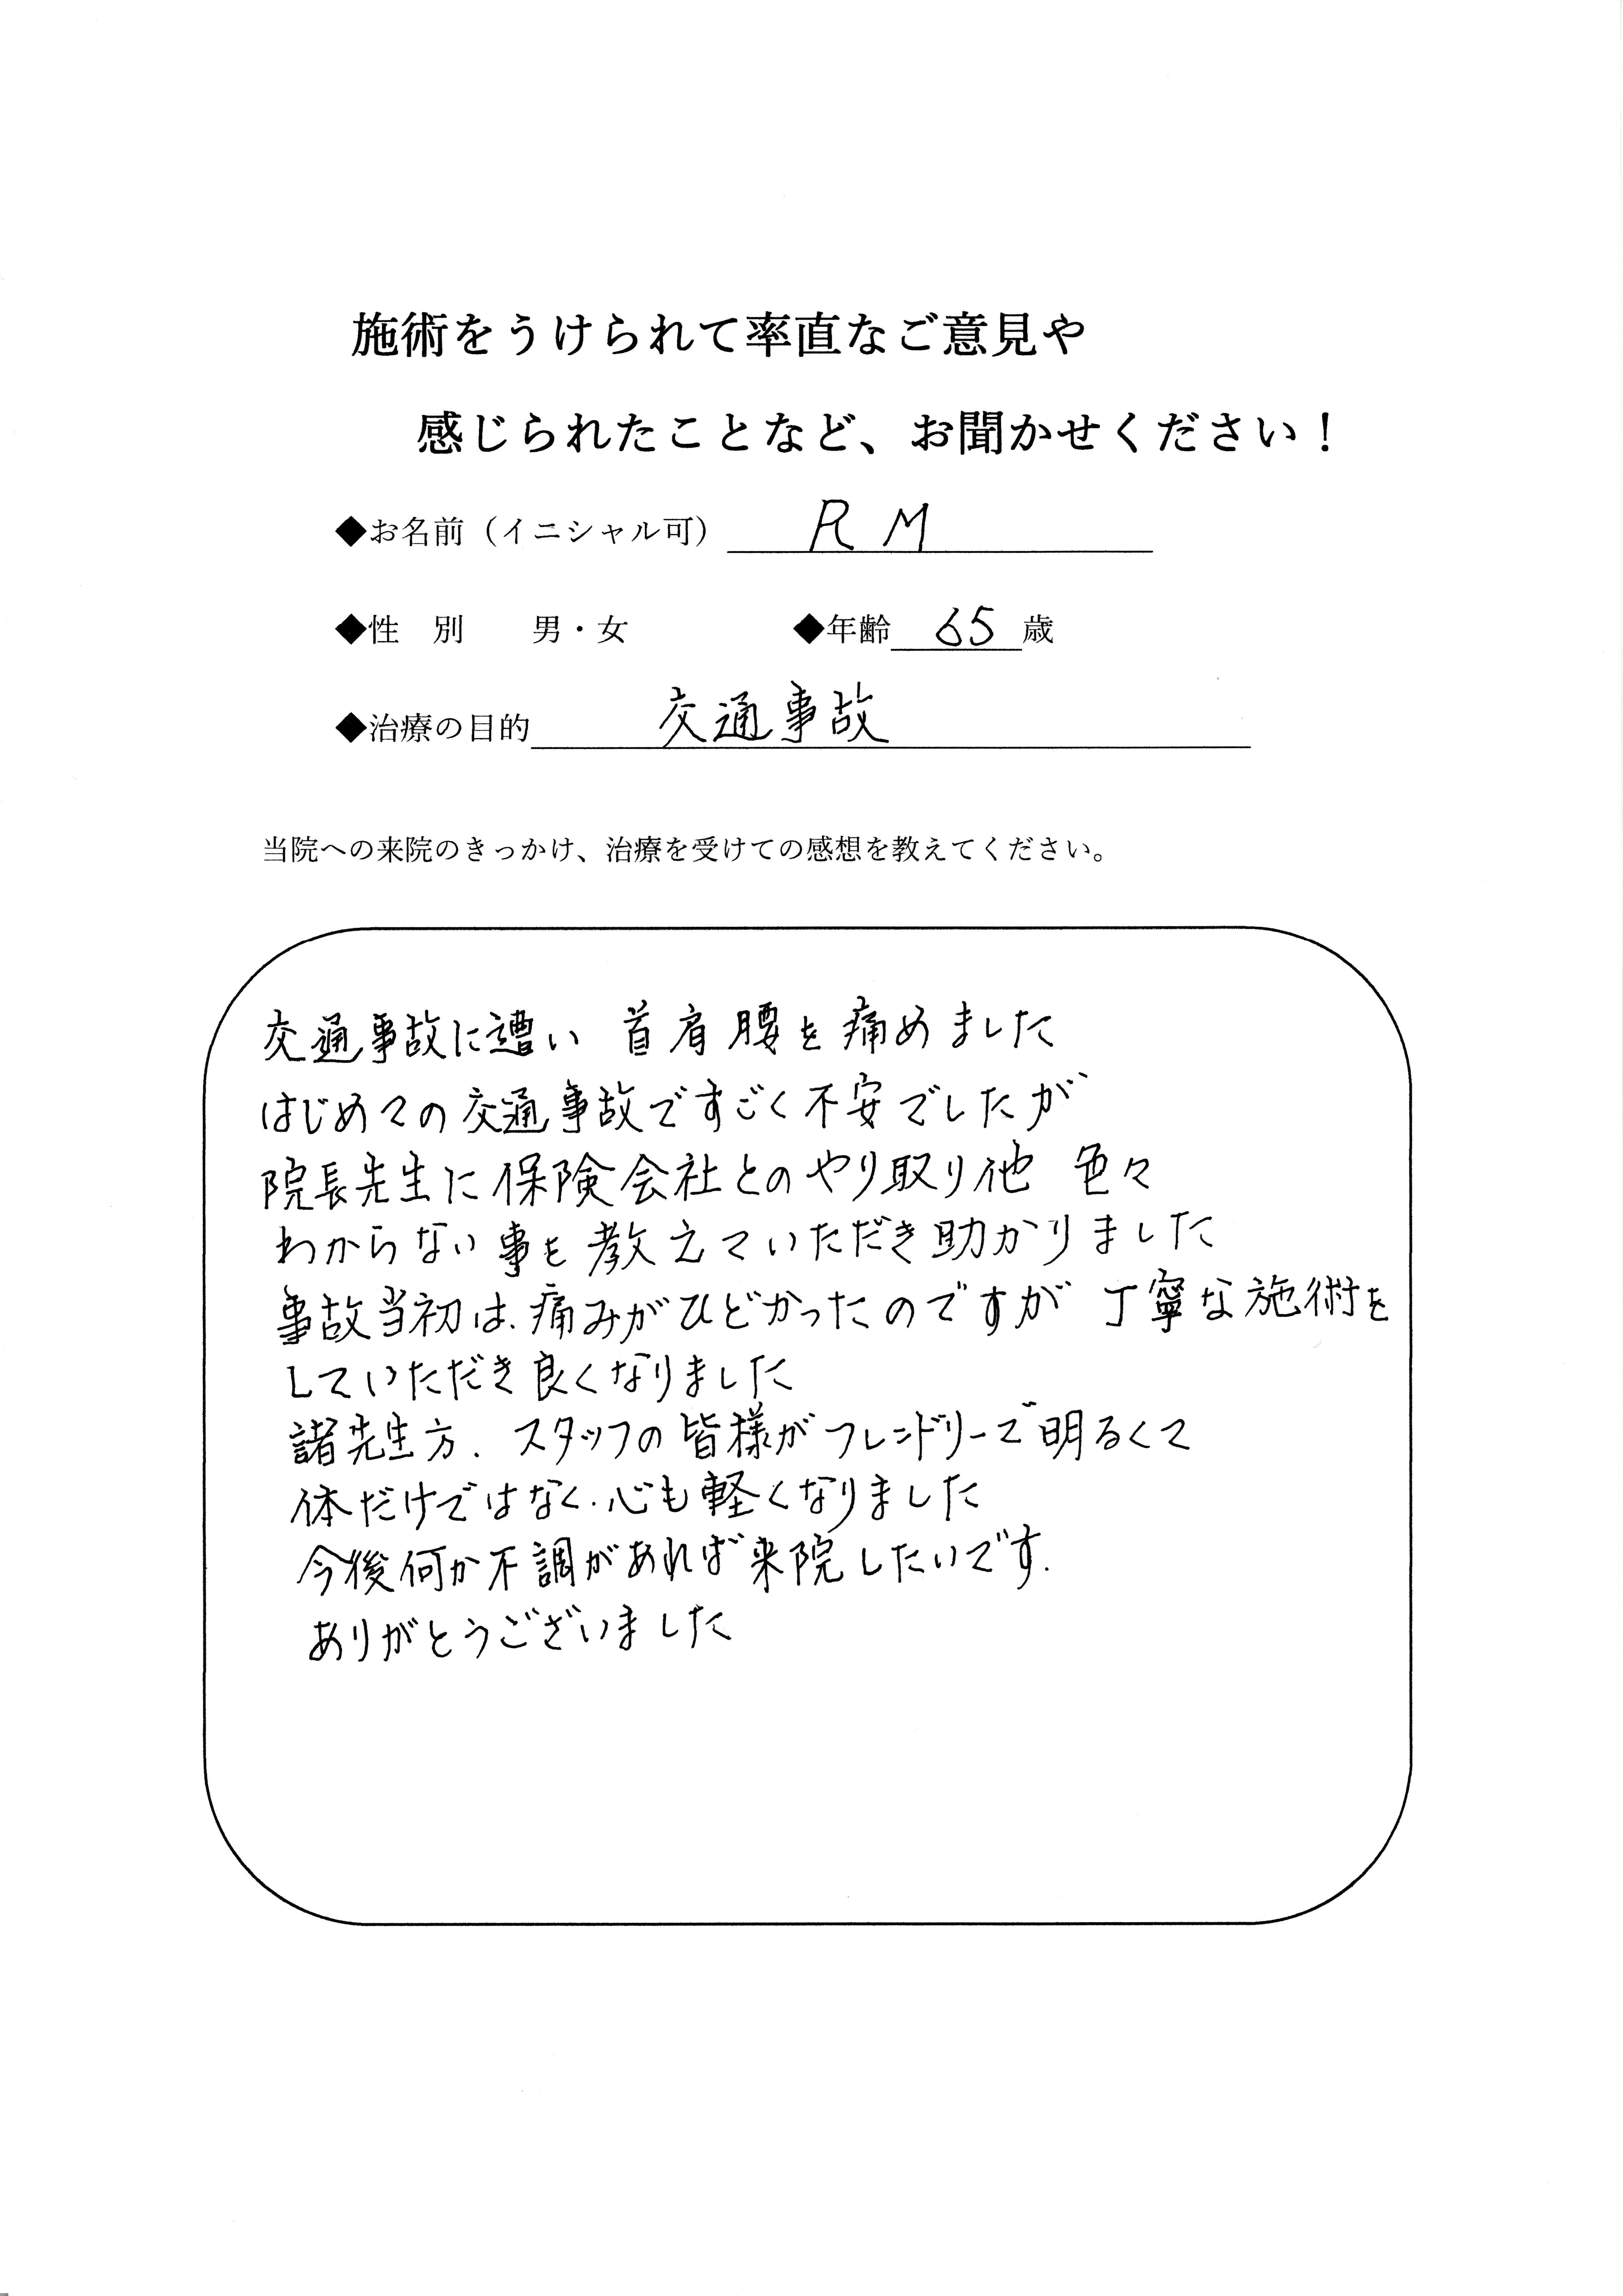 施術をうけられて率直なご意見や
感じられたことなど、お聞かせください！
◆お名前（イニシャル可） R M
◆性 別 男・女 ◆年齢 65 歳
◆治療の目的 交通事故
当院への来院のきっかけ、治療を受けての感想を教えてください。
交通事故に遭い 首肩腰を痛めました
はじめての交通事故ですごく不安でしたが
院長先生に保険会社とのやり取り他 色々
わからない事を教えていただき助かりました
事故当初は、痛みがひどかったのですが 丁寧な施術を
していただき良くなりました
諸先生方、スタッフの皆様がフレンドリーで明るくて
体だけではなく、心も軽くなりました
今後何か不調があれば来院したいです.
ありがとうございました